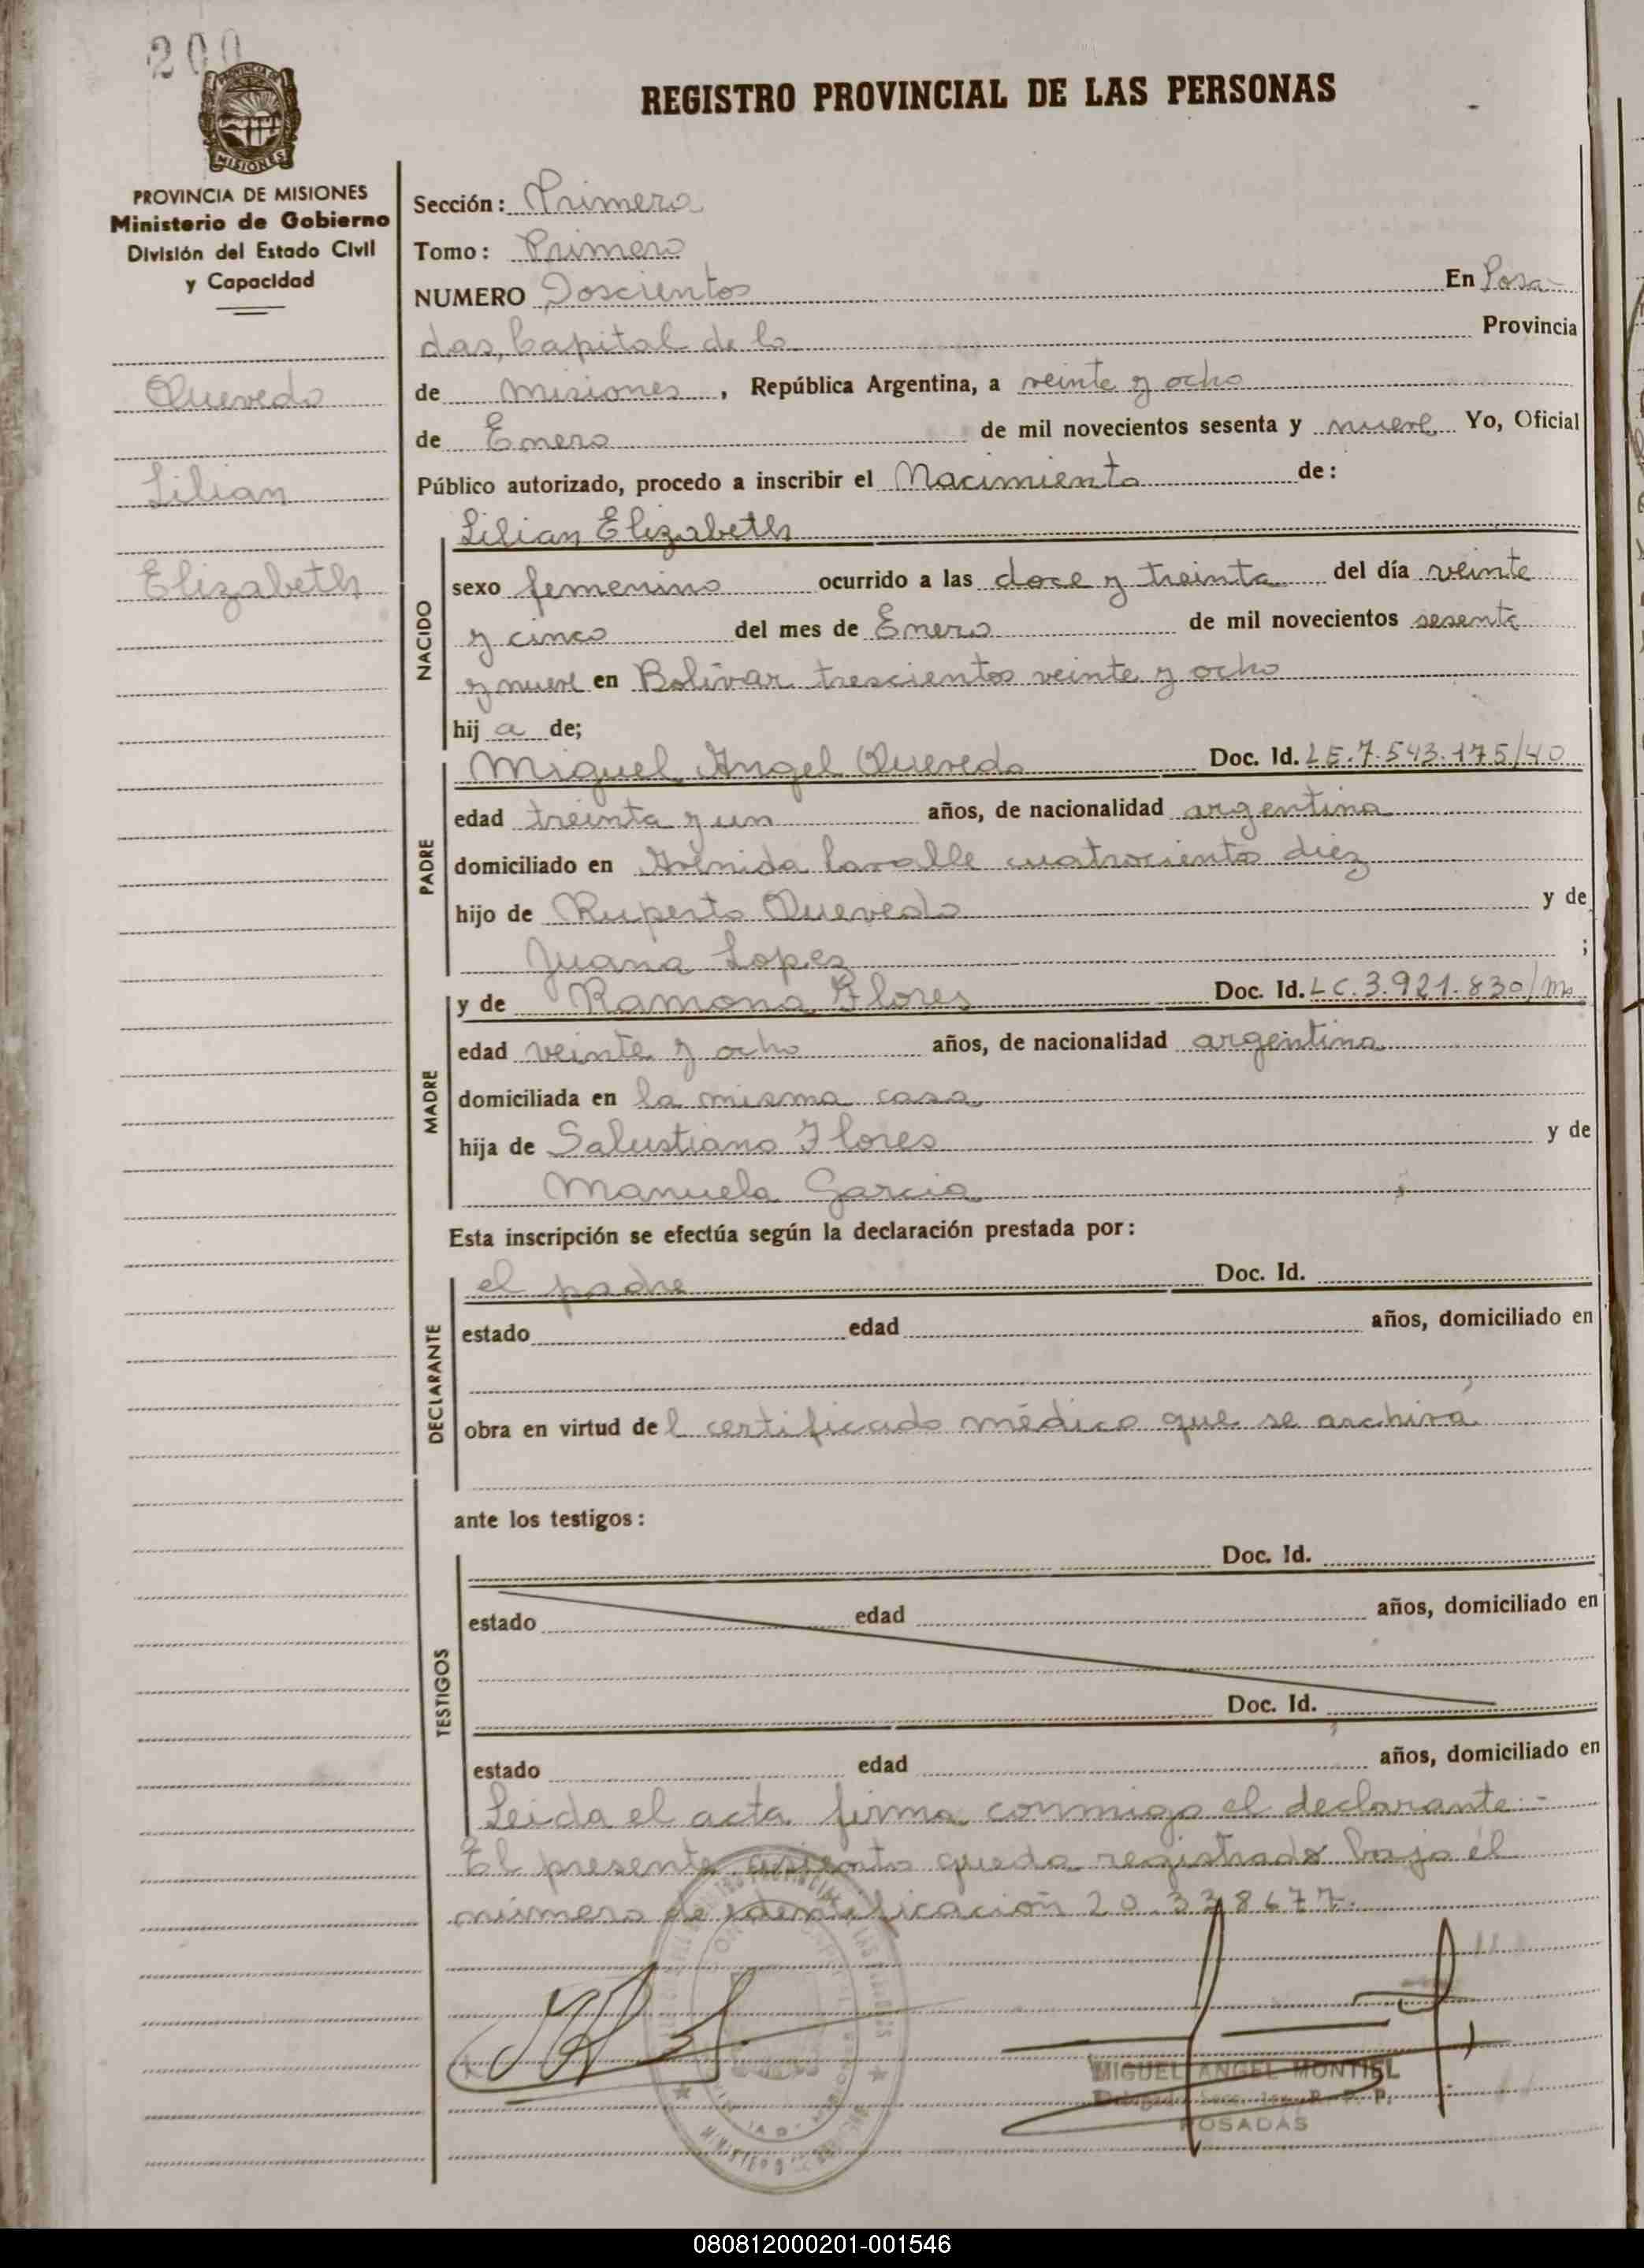 200
REGISTRO PROVINCIAL DE LAS PERSONAS
PROVINCIA DE MISIONES
Ministerio de Gobierno
División del Estado Civil
y Capacidad
Quevedo
Lilian
Elizabeth
Sección: Primera
Tomo: Primero
NUMERO Doscientos En Posa-
das, Capital de la Provincia
de Misiones, República Argentina, a veinte y ocho
de Enero de mil novecientos sesenta y nueve Yo, Oficial
Público autorizado, procedo a inscribir el Nacimiento de:
NACIDO
Lilian Elizabeth
sexo femenino ocurrido a las doce y treinta del día veinte
y cinco del mes de Enero de mil novecientos sesenta
y nueve en Bolívar trescientos veinte y ocho
hij a de;
PADRE
Miguel Angel Quevedo Doc. Id. LE.7.543.175/40
edad treinta y un años, de nacionalidad argentina
domiciliado en Avenida Lavalle cuatrociento diez
hijo de Ruperto Quevedo y de
Juana Lopez ;
MADRE
y de Ramona Flores Doc. Id. LC.3.921.830/Ms
edad veinte y ocho años, de nacionalidad argentina
domiciliada en la misma casa
hija de Salustiano Flores y de
Manuela Garcia
Esta inscripción se efectúa según la declaración prestada por:
DECLARANTE
el padre Doc. Id.
estado edad años, domiciliado en
obra en virtud del certificado médico que se archiva
ante los testigos:
TESTIGOS
Doc. Id.
estado edad años, domiciliado en
Doc. Id.
estado edad años, domiciliado en
Leida el acta firma conmigo el declarante.-
El presente asiento queda registrado bajo él
número de identificación 20.338677.
MIGUEL ANGEL MONTIEL
R. P. P.
POSADAS
080812000201-001546